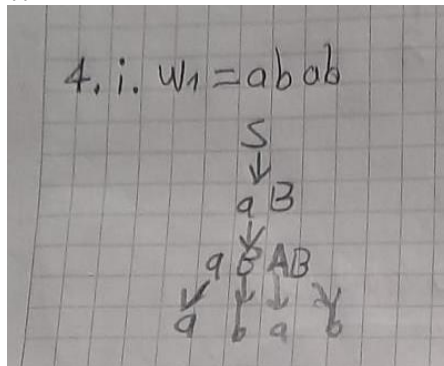 4. i. W1 = abab
S
aB
aBAB
a b a b